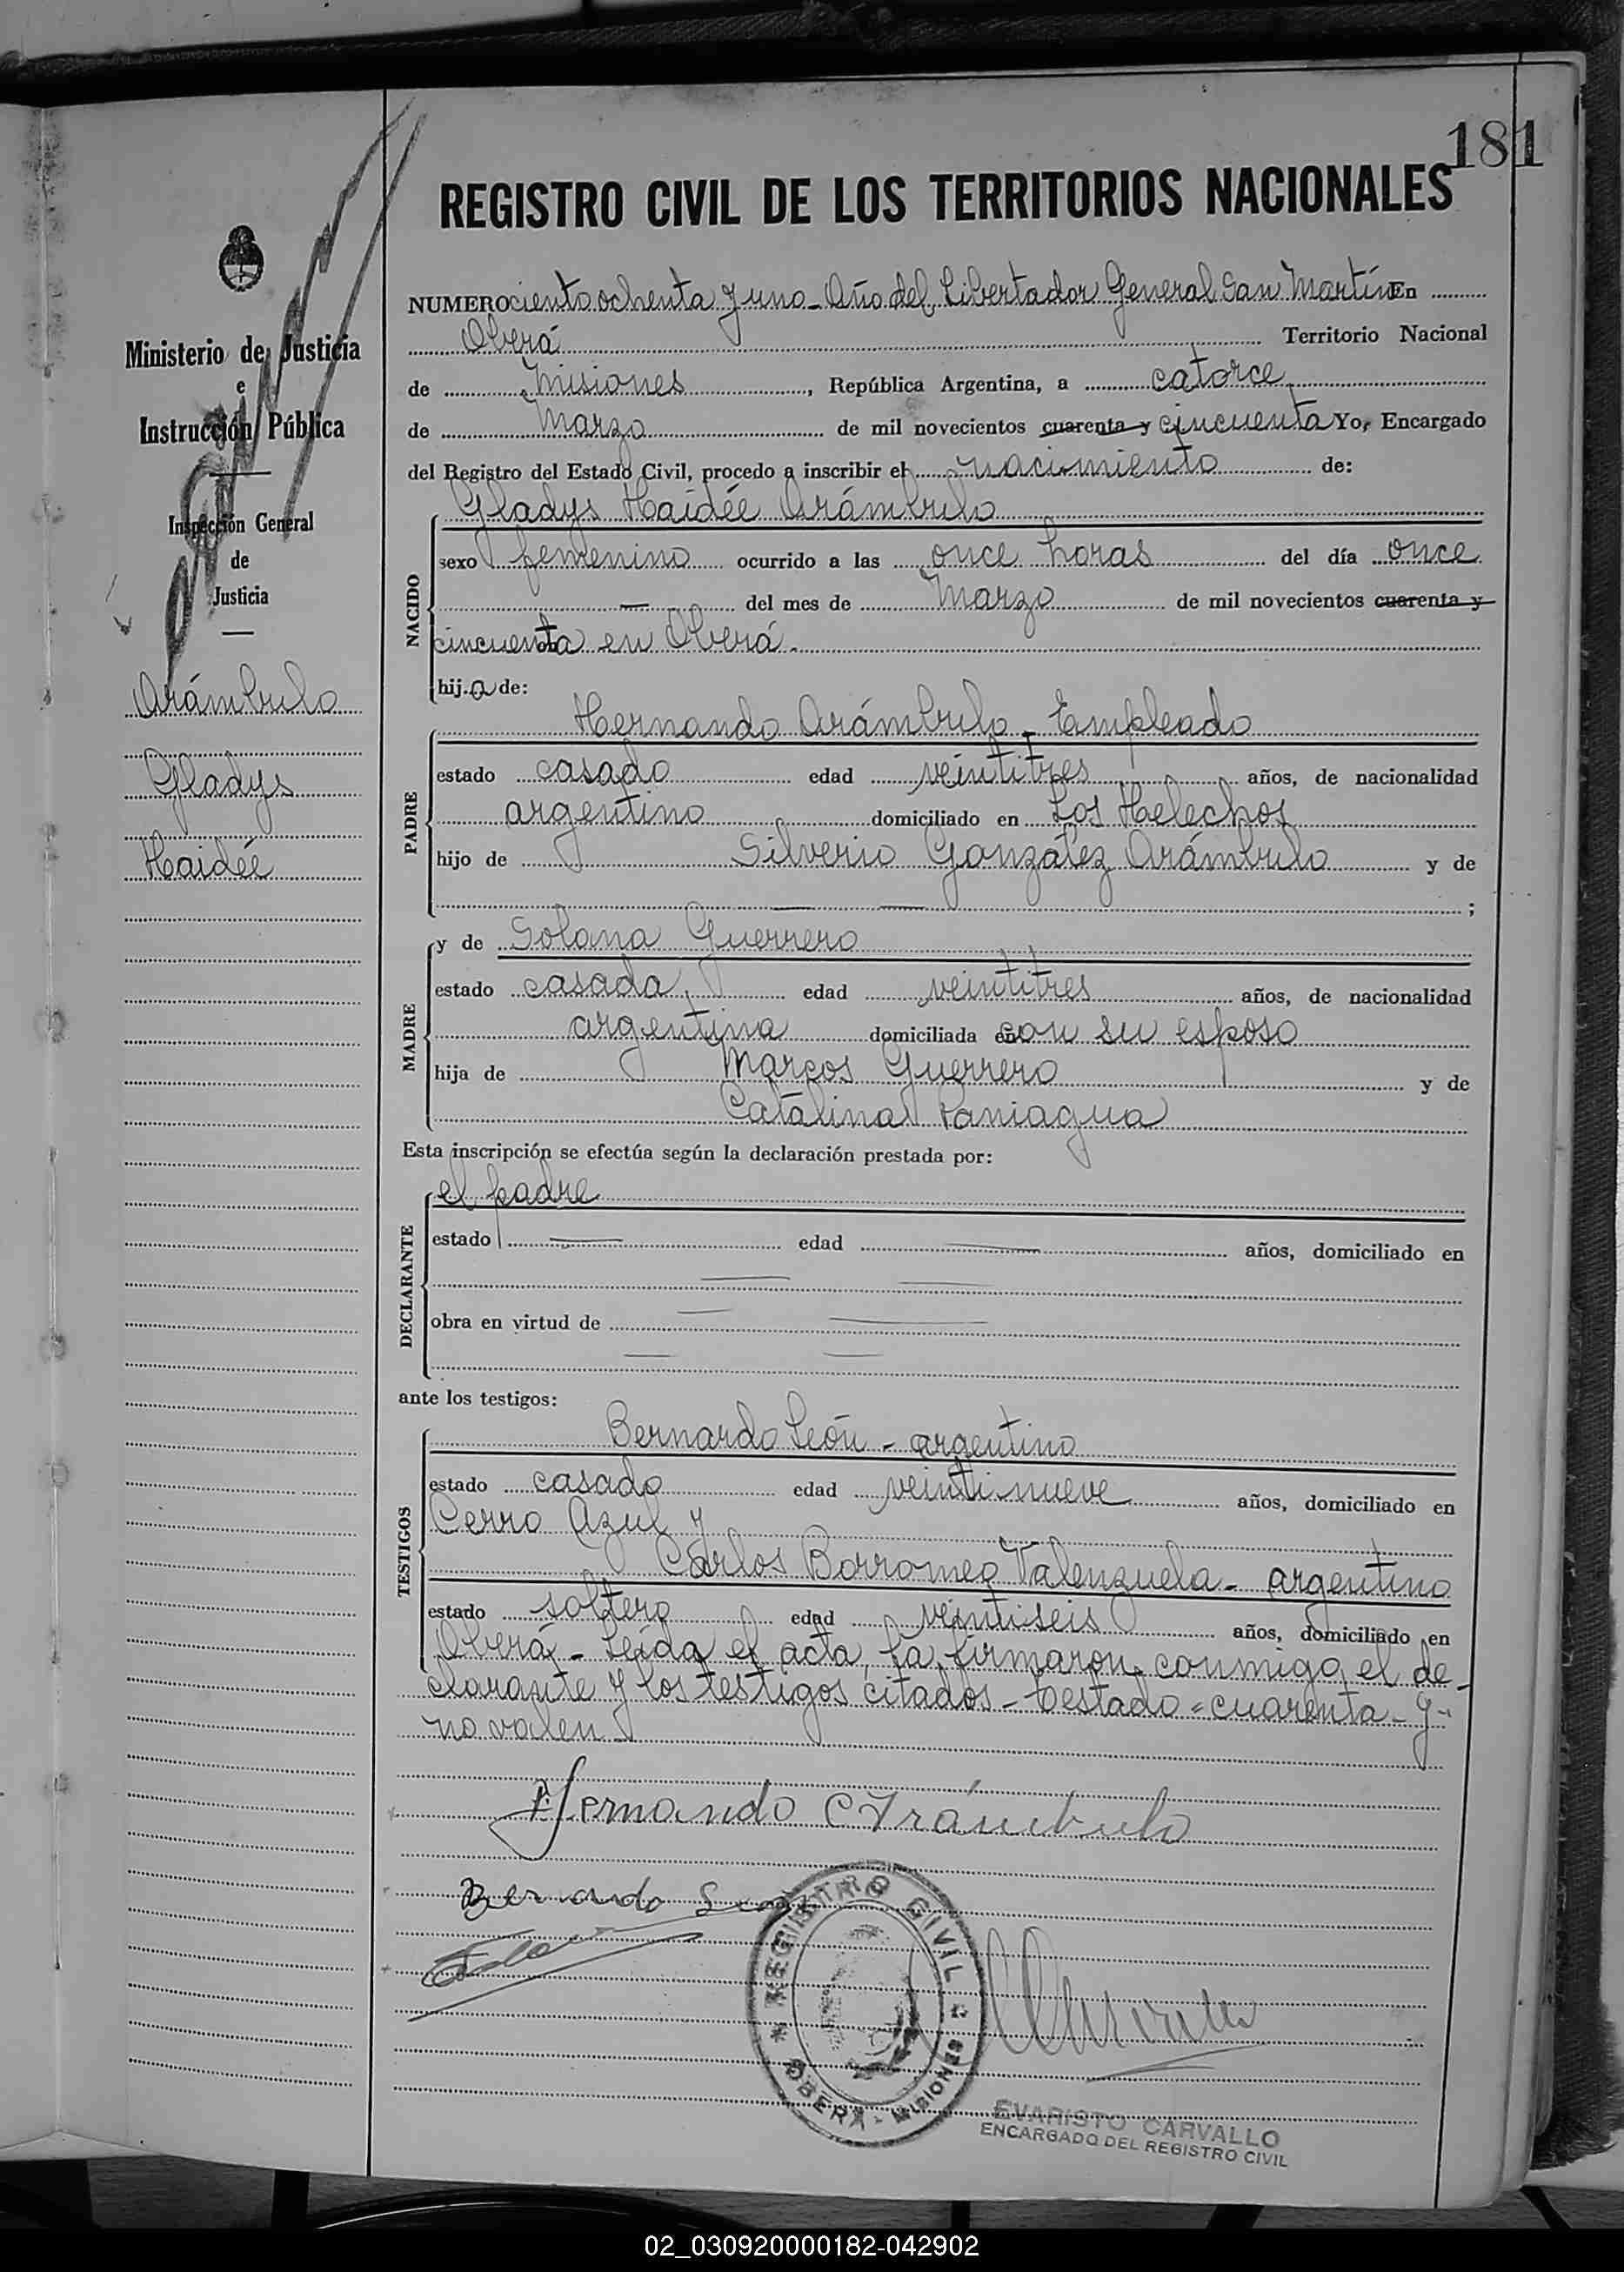 181
REGISTRO CIVIL DE LOS TERRITORIOS NACIONALES
Ministerio de Justicia
e
Instrucción Pública
Inspección General
de
Justicia
Arámbulo
Gladys
Haidée
NUMERO ciento ochenta y uno - Año del Libertador General San Martín En
Oberá Territorio Nacional
de Misiones, República Argentina, a catorce
de Marzo de mil novecientos cuarenta y cincuenta Yo, Encargado
del Registro del Estado Civil, procedo a inscribir el nacimiento de:
Gladys Haidée Arámbulo
NACIDO
sexo femenino ocurrido a las once horas del día once
— del mes de Marzo de mil novecientos cuarenta y
cincuenta en Oberá.
hija de:
Hernando Arámbulo - Empleado
PADRE
estado casado edad veintitres años, de nacionalidad
argentino domiciliado en Los Helechos
hijo de Silverio González Arámbulo y de
— — ;
y de Solana Guerrero
MADRE
estado casada edad veintitres años, de nacionalidad
argentina domiciliada en con su esposo
hija de Marcos Guerrero y de
Catalina Paniagua
Esta inscripción se efectúa según la declaración prestada por:
el padre
DECLARANTE
estado — edad — años, domiciliado en
— —
obra en virtud de — —
— —
ante los testigos:
Bernardo León - argentino
TESTIGOS
estado casado edad veintinueve años, domiciliado en
Cerro Azul y
Carlos Borromeo Valenzuela - argentino
estado soltero edad veintiseis años, domiciliado en
Oberá - Leída el acta, la firmaron conmigo el de-
clarante y los testigos citados - Testado = cuarenta - y -
no valen
Hernando Arámbulo
Bernardo León
REGISTRO CIVIL
OBERÁ - MISIONES
EVARISTO CARVALLO
ENCARGADO DEL REGISTRO CIVIL
02_030920000182-042902